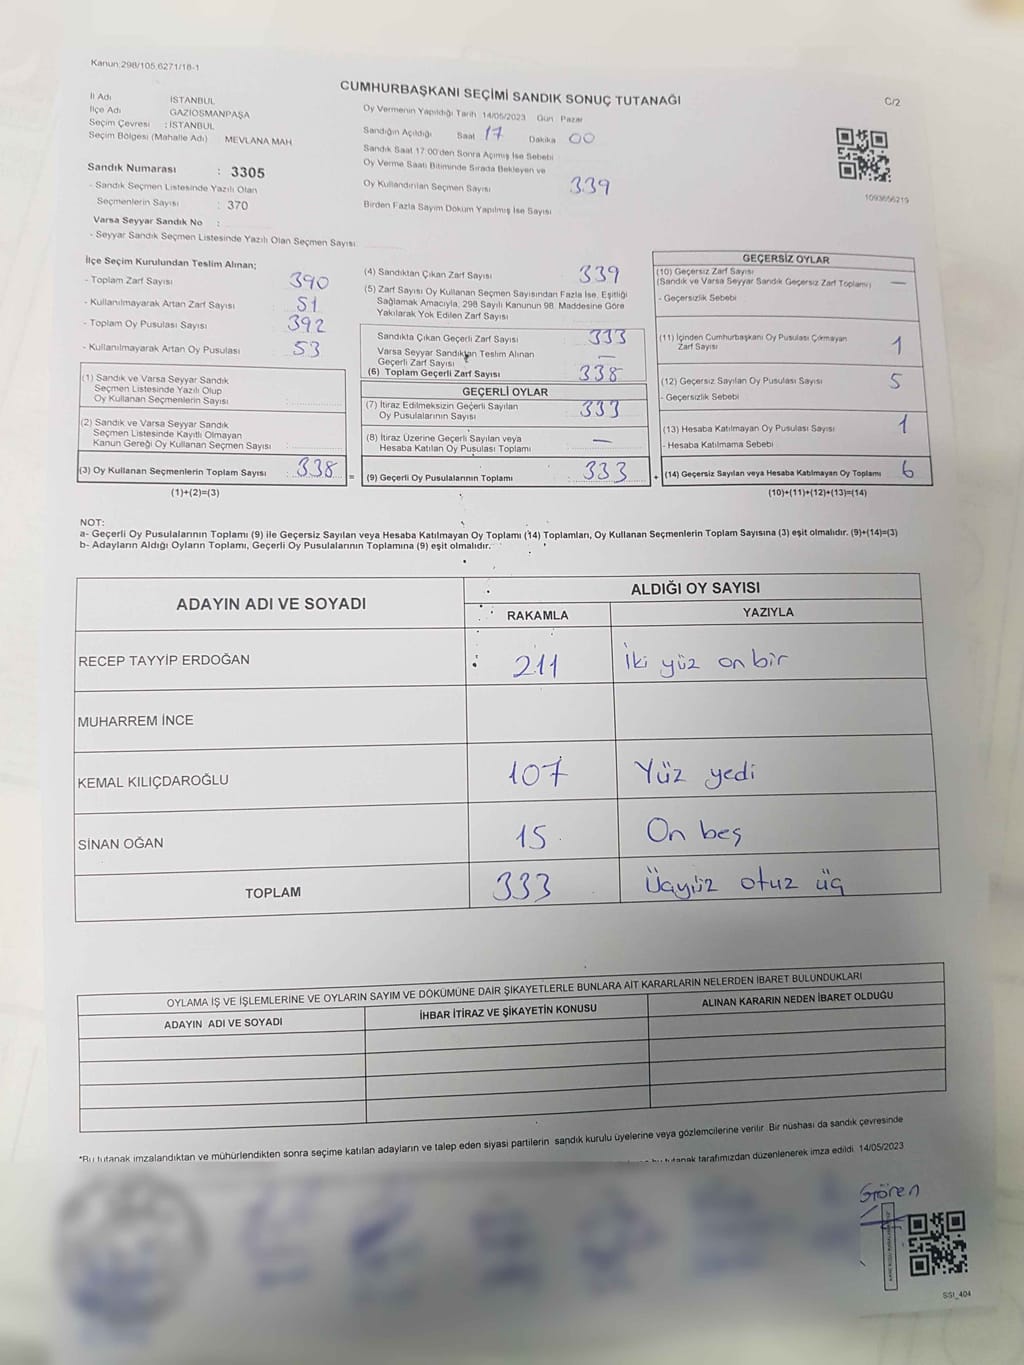 Kanun:298/105,6271/18-1
CUMHURBAŞKANI SEÇİMİ SANDIK SONUÇ TUTANAĞI
C/2
İl Adı İSTANBUL
İlçe Adı GAZİOSMANPAŞA
Seçim Çevresi : İSTANBUL
Seçim Bölgesi (Mahalle Adı) MEVLANA MAH
Sandık Numarası : 3305
- Sandık Seçmen Listesinde Yazılı Olan
Seçmenlerin Sayısı : 370
Varsa Seyyar Sandık No :
- Seyyar Sandık Seçmen Listesinde Yazılı Olan Seçmen Sayısı
Oy Vermenin Yapıldığı Tarih 14/05/2023 Gün Pazar
Sandığın Açıldığı Saat 17 Dakika 00
Sandık Saat 17:00'den Sonra Açımış İse Sebebi
Oy Verme Saati Bitiminde Sırada Bekleyen ve
Oy Kullandırılan Seçmen Sayısı 339
Birden Fazla Sayım Döküm Yapılmış İse Sayısı
1093656219
İlçe Seçim Kurulundan Teslim Alınan;
- Toplam Zarf Sayısı 390
- Kullanılmayarak Artan Zarf Sayısı 51
- Toplam Oy Pusulası Sayısı 392
- Kullanılmayarak Artan Oy Pusulası 53
(1) Sandık ve Varsa Seyyar Sandık
Seçmen Listesinde Yazılı Olup
Oy Kullanan Seçmenlerin Sayısı :
(2) Sandık ve Varsa Seyyar Sandık
Seçmen Listesinde Kayıtlı Olmayan
Kanun Gereği Oy Kullanan Seçmen Sayısı :
(3) Oy Kullanan Seçmenlerin Toplam Sayısı : 338 =
(1)+(2)=(3)
(4) Sandıktan Çıkan Zarf Sayısı 339
(5) Zarf Sayısı Oy Kullanan Seçmen Sayısından Fazla İse, Eşitliği
Sağlamak Amacıyla, 298 Sayılı Kanunun 98. Maddesine Göre
Yakılarak Yok Edilen Zarf Sayısı
Sandıkta Çıkan Geçerli Zarf Sayısı : 333
Varsa Seyyar Sandıktan Teslim Alınan
Geçerli Zarf Sayısı : —
(6) Toplam Geçerli Zarf Sayısı : 338
GEÇERLİ OYLAR
(7) İtiraz Edilmeksizin Geçerli Sayılan
Oy Pusulalarının Sayısı : 333
(8) İtiraz Üzerine Geçerli Sayılan veya
Hesaba Katılan Oy Pusulası Toplamı : —
(9) Geçerli Oy Pusulalarının Toplamı : 333 +
GEÇERSİZ OYLAR
(10) Geçersiz Zarf Sayısı
(Sandık ve Varsa Seyyar Sandık Geçersiz Zarf Toplamı) —
- Geçersizlik Sebebi
(11) İçinden Cumhurbaşkanı Oy Pusulası Çıkmayan
Zarf Sayısı 1
(12) Geçersiz Sayılan Oy Pusulası Sayısı 5
- Geçersizlik Sebebi
(13) Hesaba Katılmayan Oy Pusulası Sayısı 1
- Hesaba Katılmama Sebebi
(14) Geçersiz Sayılan veya Hesaba Katılmayan Oy Toplamı 6
(10)+(11)+(12)+(13)=(14)
NOT:
a- Geçerli Oy Pusulalarının Toplamı (9) ile Geçersiz Sayılan veya Hesaba Katılmayan Oy Toplamı (14) Toplamları, Oy Kullanan Seçmenlerin Toplam Sayısına (3) eşit olmalıdır. (9)+(14)=(3)
b- Adayların Aldığı Oyların Toplamı, Geçerli Oy Pusulalarının Toplamına (9) eşit olmalıdır.
ADAYIN ADI VE SOYADI ALDIĞI OY SAYISI
RAKAMLA YAZIYLA
RECEP TAYYİP ERDOĞAN 211 İki yüz on bir
MUHARREM İNCE
KEMAL KILIÇDAROĞLU 107 Yüz yedi
SİNAN OĞAN 15 On beş
TOPLAM 333 Üçyüz otuz üç
OYLAMA İŞ VE İŞLEMLERİNE VE OYLARIN SAYIM VE DÖKÜMÜNE DAİR ŞİKAYETLERLE BUNLARA AİT KARARLARIN NELERDEN İBARET BULUNDUKLARI
ADAYIN ADI VE SOYADI İHBAR İTİRAZ VE ŞİKAYETİN KONUSU ALINAN KARARIN NEDEN İBARET OLDUĞU
*Bu tutanak imzalandıktan ve mühürlendikten sonra seçime katılan adayların ve talep eden siyasi partilerin sandık kurulu üyelerine veya gözlemcilerine verilir. Bir nüshası da sandık çevresinde
bu tutanak tarafımızdan düzenlenerek imza edildi. 14/05/2023
Gören
SSI_404